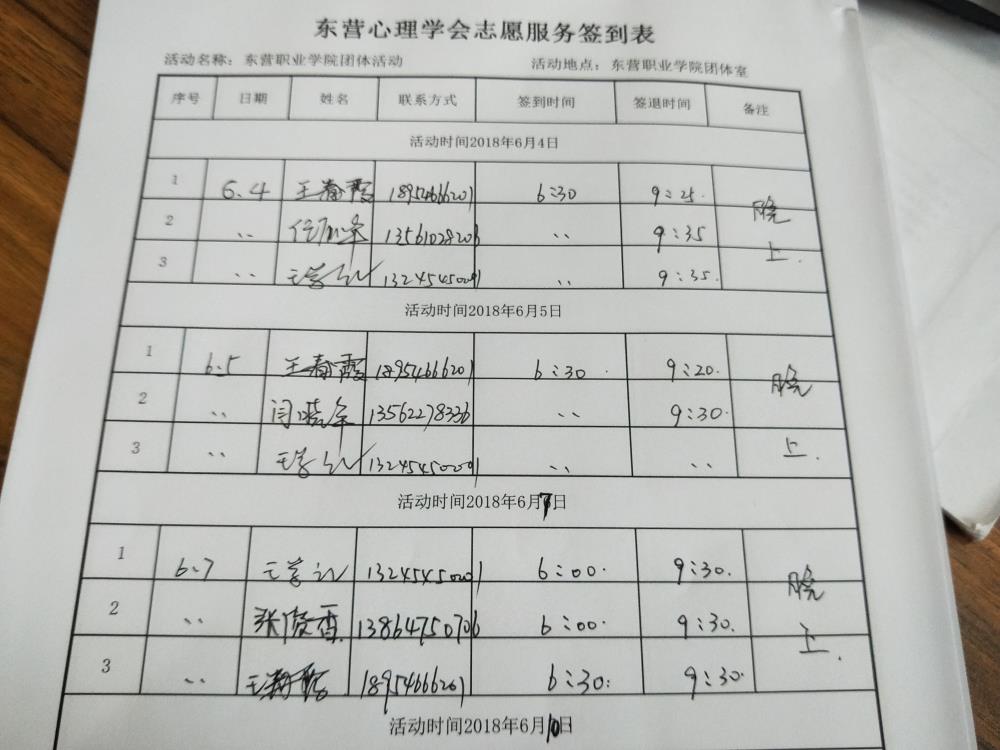 东营心理学会志愿服务签到表
活动名称：东营职业学院团体活动 活动地点：东营职业学院团体室
序号 日期 姓名 联系方式 签到时间 签退时间 备注
活动时间2018年6月4日
1 6.4 王春霞 18954666201 6:30 9:25. 晚上.
2 .. 13561028206 .. 9:35
3 .. 13245450009 .. 9:35.
活动时间2018年6月5日
1 6.5 王春霞 18954666201 6:30. 9:20. 晚上.
2 .. 闫晓军 13562278336 .. 9:30.
3 .. 13245450001 .. ..
活动时间2018年6月7日
1 6.7 6:00. 9:30. 晚上.
2 .. 张俊香 13864750706 6:00. 9:30.
3 .. 18954666201 6:30. 9:30.
活动时间2018年6月10日